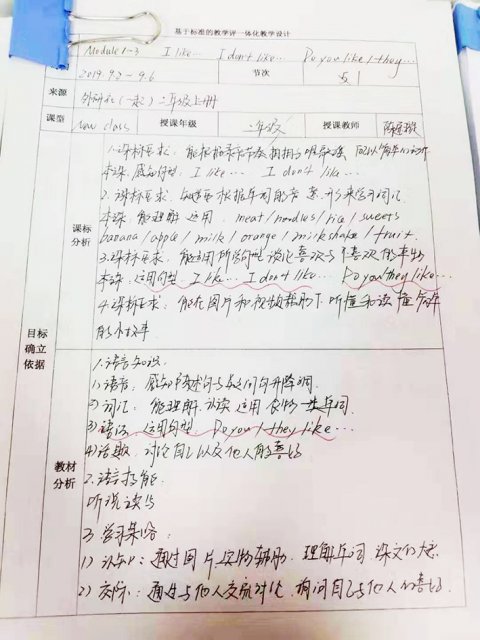 基于标准的教学评一体化教学设计
Module 1-3 I like… I don't like… Do you like / they…
2019.9.2 - 9.6 节次
来源 外研社(一起)二年级上册
课型 New class 授课年级 二年级 授课教师 陈
1.课标要求:能根据
本课:感知句型:I like… I don't like…
2.课标要求:知道要根据单词的音、义、形来学习词汇
本课:能理解运用:meat/noodles/rice/sweets
banana/apple/milk/orange/milkshake/fruit.
3.课标要求:能运用所给句型谈论喜欢与不喜欢的事物
本课:运用句型:I like… I don't like… Do you/they like…
4.课标要求:能在图片和视频帮助下听懂和读懂简单
的小故事
课标
分析
目标
确立
依据
1.语言知识:
1)语音:感知陈述句与疑问句的升降调.
2)词汇:能理解、认读、运用食物类单词.
3)语法:运用句型 Do you / they like…
4)话题:讨论自己以及他人的喜好
2.语言技能:
听说读写
3.学习策略:
1)认知:通过图片、实物辅助,理解单词、课文的大意
2)交际:通过与他人交流对话,询问自己与他人的喜好.
教材
分析